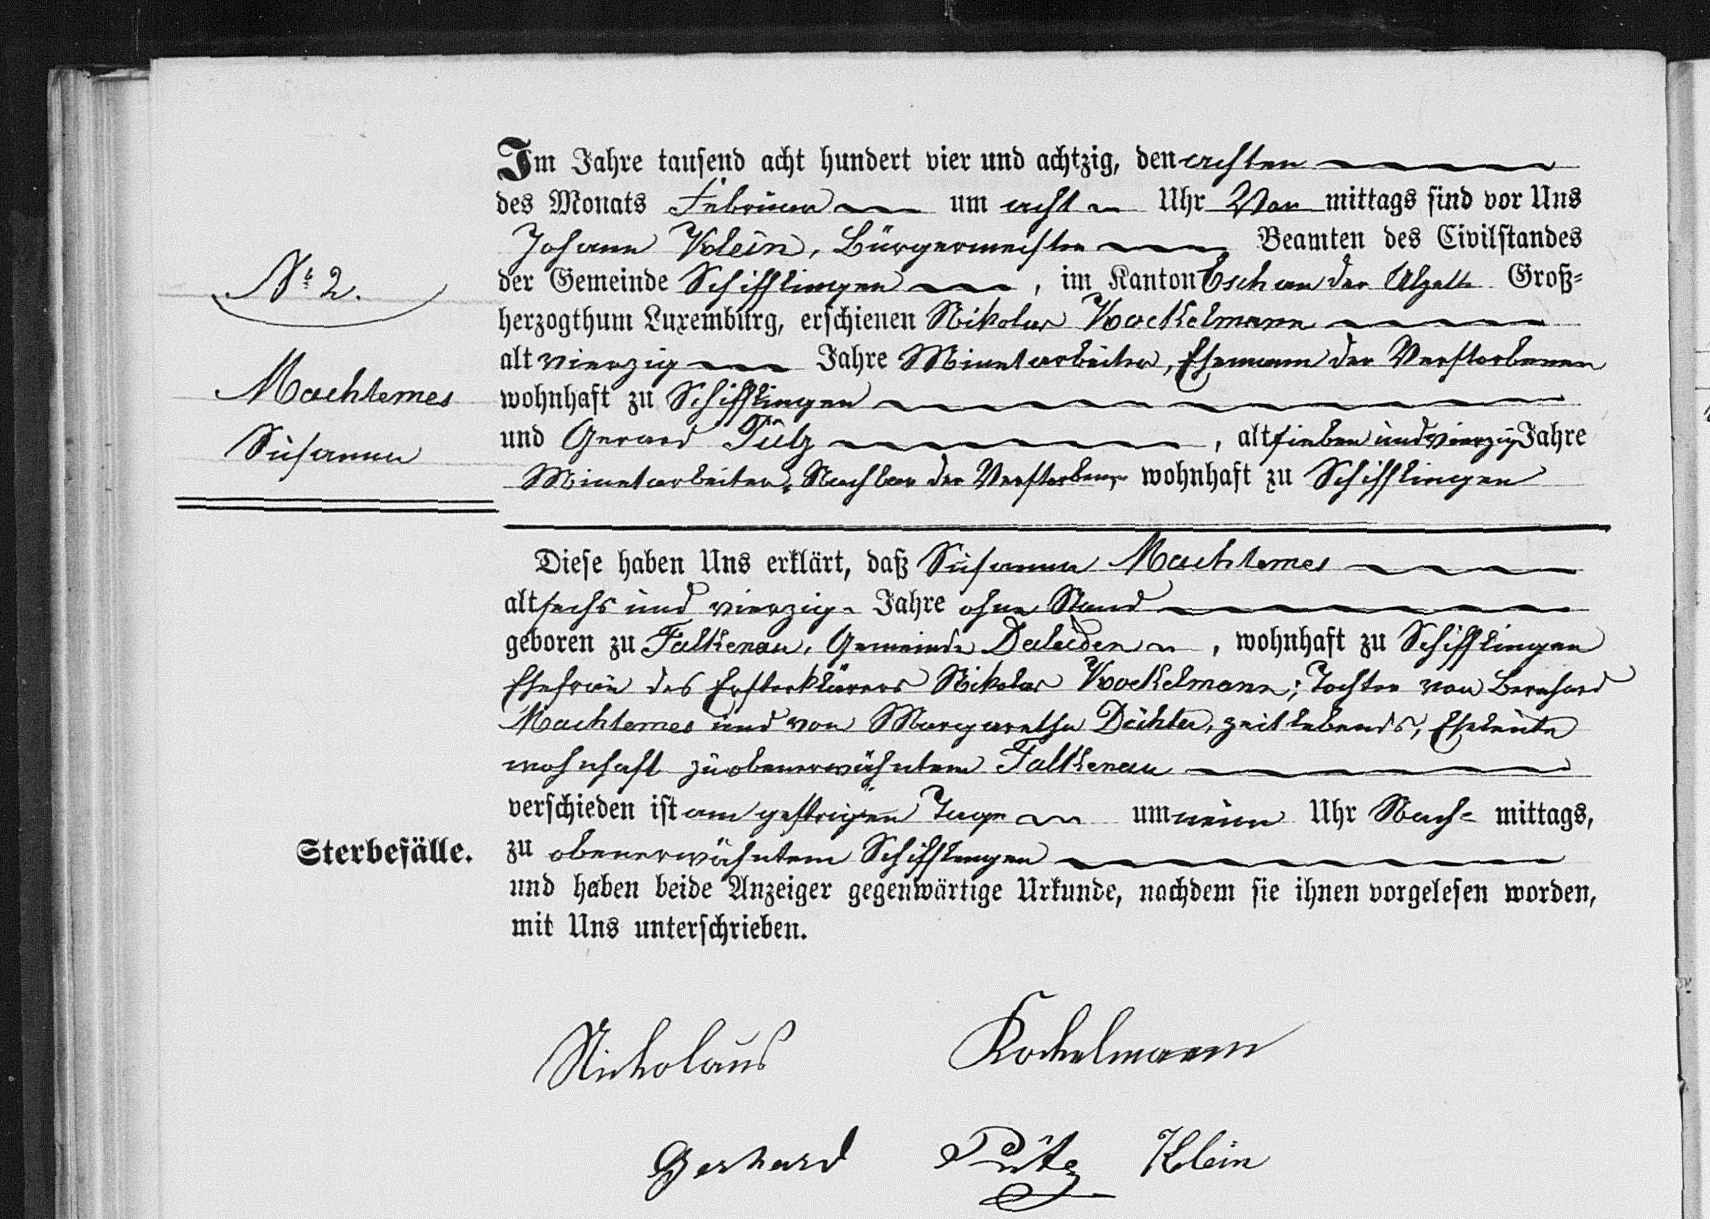 Im Jahre tausend acht hundert vier und achtzig, den achten
des Monats Februar um acht Uhr Vor mittags sind vor Uns
Johann Klein, Bürgermeister Beamten des Civilstandes
der Gemeinde Schifflingen, im Kanton Esch an der Alzette Groß-
herzogthum Luxemburg, erschienen Nikolas Kockelmann
alt vierzig Jahre Minetarbeiter, Ehemann der Verstorbenen
wohnhaft zu Schifflingen
und Gerard Pütz, alt sieben und vierzig Jahre
Minetarbeiter, Nachbar der Verstorbenen wohnhaft zu Schifflingen
No 2.
Machtemes
Susanna
Diese haben Uns erklärt, daß Susanna Machtemes
alt sechs und vierzig Jahre ohne Stand
geboren zu Falkenau, Gemeinde Daleiden, wohnhaft zu Schifflingen
Ehefrau des Ersterklärers Nikolas Kockelmann; Tochter von Bernhard
Machtemes und von Margaretha Dichter, zeitlebends, Eheleute
wohnhaft zu obenerwähntem Falkenau
verschieden ist am gestrigen Tage um neun Uhr Nach- mittags,
zu obenerwähntem Schifflingen
und haben beide Anzeiger gegenwärtige Urkunde, nachdem sie ihnen vorgelesen worden,
mit Uns unterschrieben.
Sterbefälle.
Nickolaus Kockelmann
Gerhard Pütz Klein